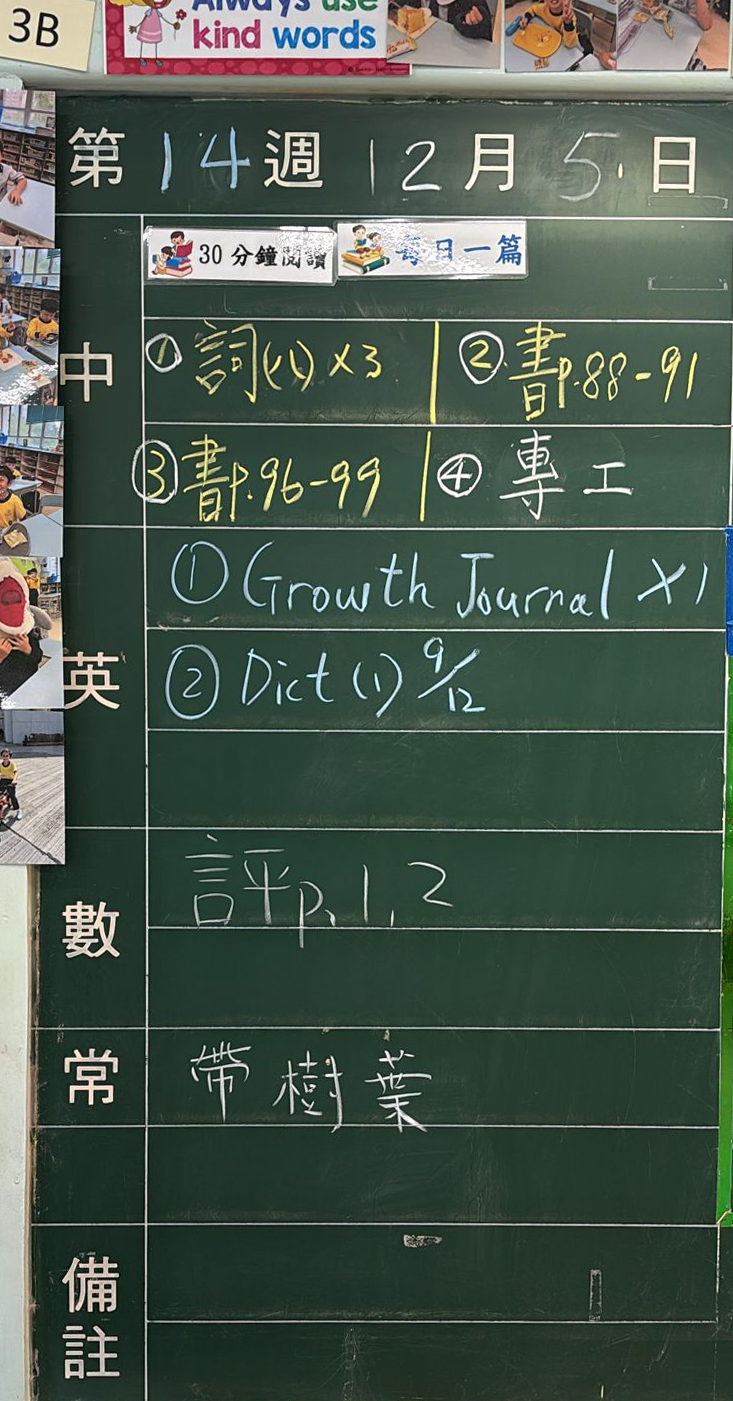 3B
Always use
kind words
第 14 週 12 月 5 日
30 分鐘閱讀 每日一篇
中
① 詞(八) ×3 | ② 書p.88-91
③ 書p.96-99 | ④ 專工
英
① Growth Journal ×1
② Dict (1) 9/12
數
評p.1,2
常
帶樹葉
備註